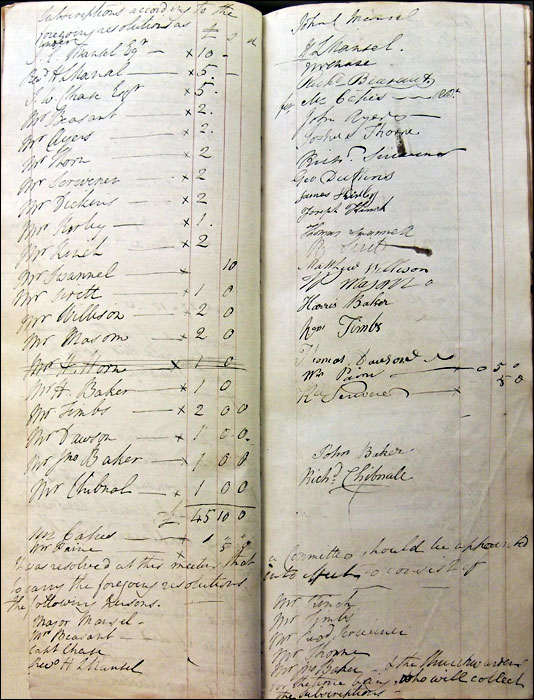 Subscriptions according to the
foregoing resolutions as
under £ s d
J. C. Mansel Esqr × 10 -
Revd H Mansel × 5 -
J. W. Chase Esqr × 5.
Mr Beasant × 2.
Mr Ayers × 2.
Mr Thorn × 2
Mr Scrivener × 2
Mr Dickens × 2
Mr × 1.
Mr Kinch × 2
Mr Swannel × 10
Mr Sirett × 1 0
Mr Willison × 2 0
Mr Mason × 2 0
Mr Horn × 1 0
Mr H. Baker × 1 0
Mr Timbs × 2 0 0
Mr Dawson × 1 0 0
Mr Jno Baker × 1 0 0
Mr Chibnal × 1 0 0
£ 45 10 0
Mr Oakes 1
Mr Paine × 5
It was resolved at this meeting that
to carry the foregoing resolutions
the following Persons.
Major Mansel
Mr Beasant
Capt Chase
Revd H L Mansel
John C Mansel
H L Mansel.
Richd Beasant
for Mr Oakes
John Ayers
Joshua Thorne
Richd Scrivener
Geo Dickens
James
Joseph Kinch
Thomas Swannell
Sirett
Matthew Willison
Harris Baker
Wm Timbs
Thomas Dawson
Wm Pain × 0 5 0
Scrivener × 5 0
John Baker
Richd Chibnale
a Committee should be appointed
into effect to consist of
Mr Kinch
Mr Timbs
Mr Scrivener
Mr Thorne
Mr Jno Baker & the Churchwardens
for the time being, who will collect
the subscriptions